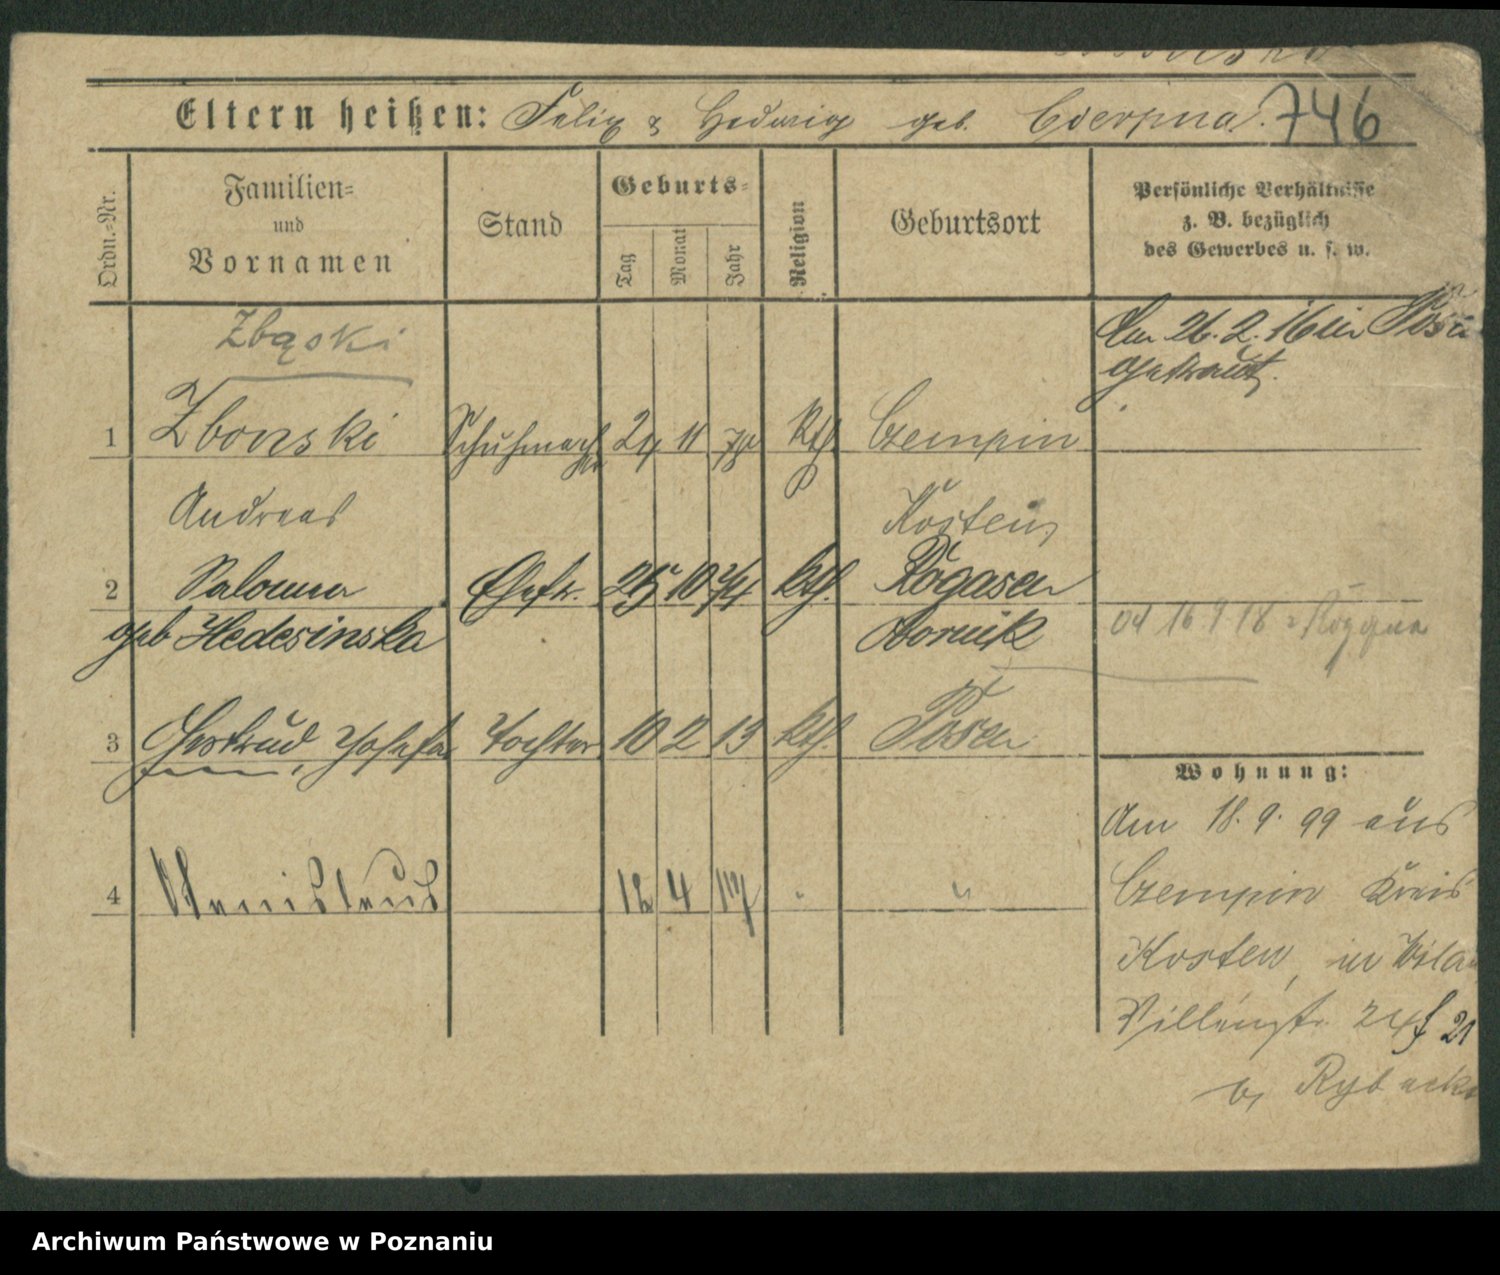 Eltern heißen: Felix & Hedwig geb. 746
Ordn.-Nr.
Familien-
und
Vornamen
Stand
Geburts-
Tag
Monat
Jahr
Religion
Geburtsort
Persönliche Verhältnisse
z. B. bezüglich
des Gewerbes u. s. w.
Zbąski
Am 26.2.16 in Posen
getraut.
1 Zbonski Schuhmacher 24 11 78 kth. Czempin
Andreas Kosten
2 Salomea Ehefr. 25 10 kth. Rogasen
geb Hedesinska Obornik
16 9 18
3 Gertrud, Josefa Tochter 10 2 13 kth. Posen
Wohnung:
Am 18.9.99 aus
4 Stanislaus 12 4 17 " "
Czempin Kreis
Kosten, in Wilda
24
21
b/ Rybacki
Archiwum Państwowe w Poznaniu